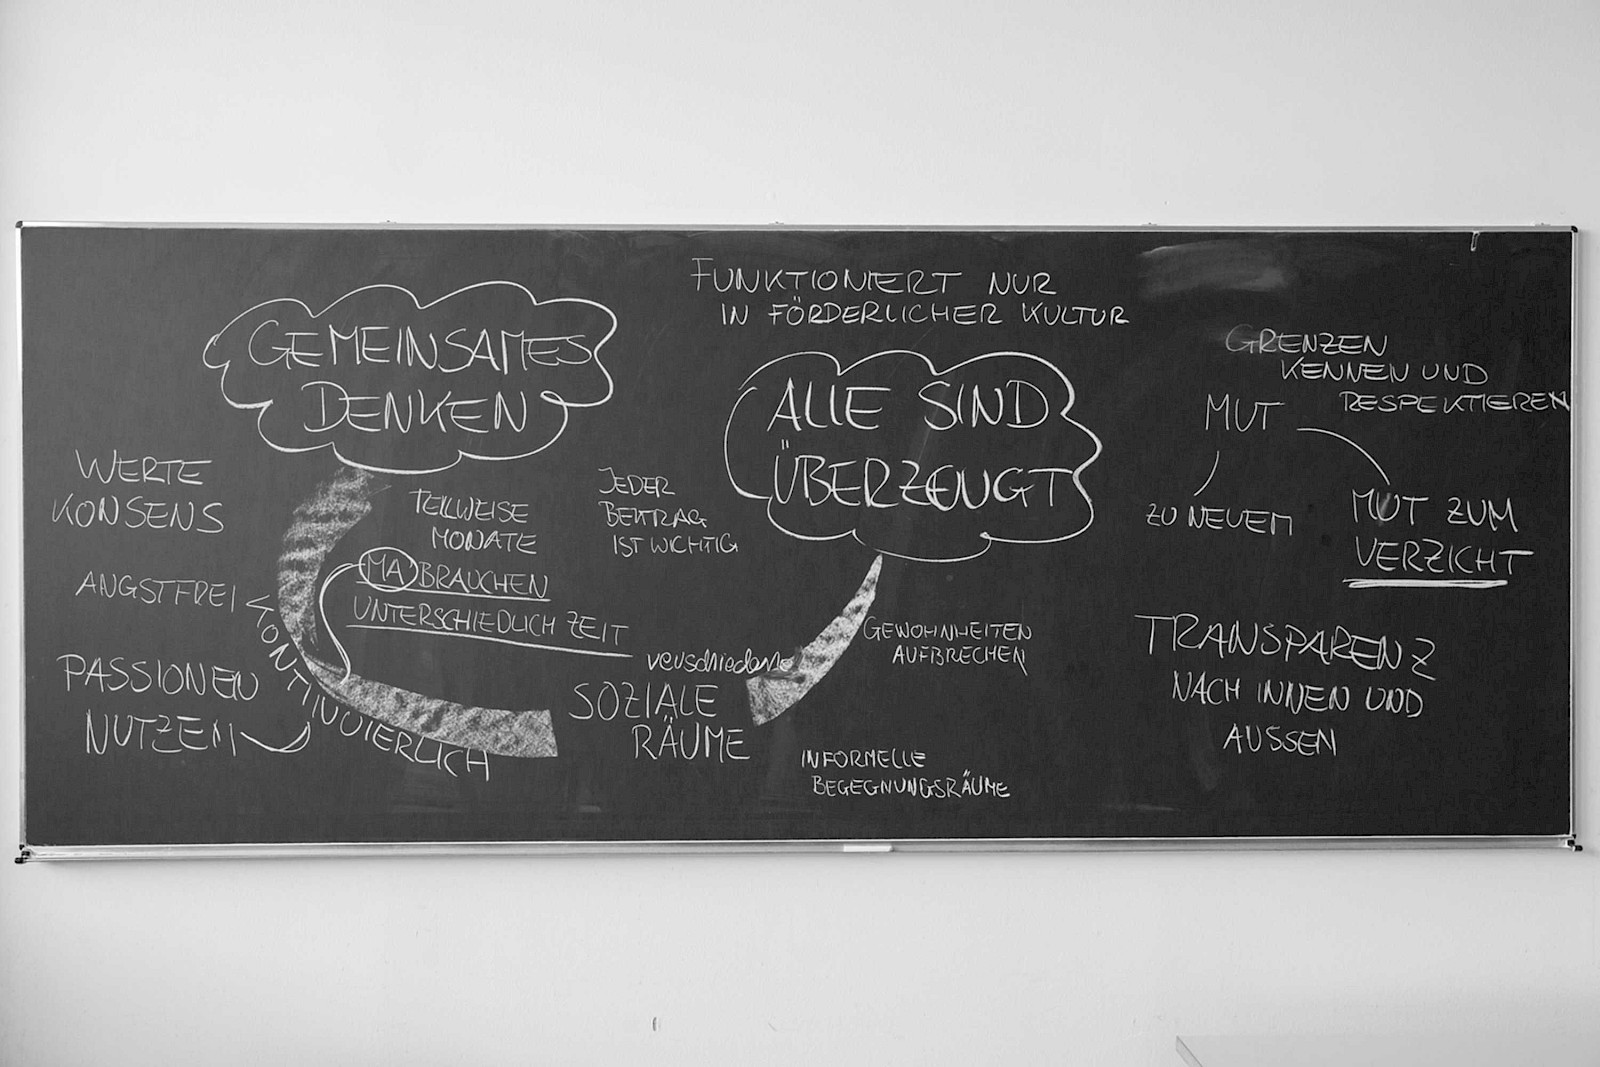 GEMEINSAMES
DENKEN
WERTE
KONSENS
ANGSTFREI
PASSIONEN
NUTZEN
KONTINUIERLICH
TEILWEISE
MONATE
MA' BRAUCHEN
UNTERSCHIEDLICH ZEIT
JEDER
BEITRAG
IST WICHTIG
verschiedene
SOZIALE
RÄUME
FUNKTIONIERT NUR
IN FÖRDERLICHER KULTUR
ALLE SIND
ÜBERZEUGT
GEWOHNHEITEN
AUFBRECHEN
INFORMELLE
BEGEGNUNGSRÄUME
GRENZEN
KENNEN UND
RESPEKTIEREN
MUT
ZU NEUEM
MUT ZUM
VERZICHT
TRANSPARENZ
NACH INNEN UND
AUSSEN